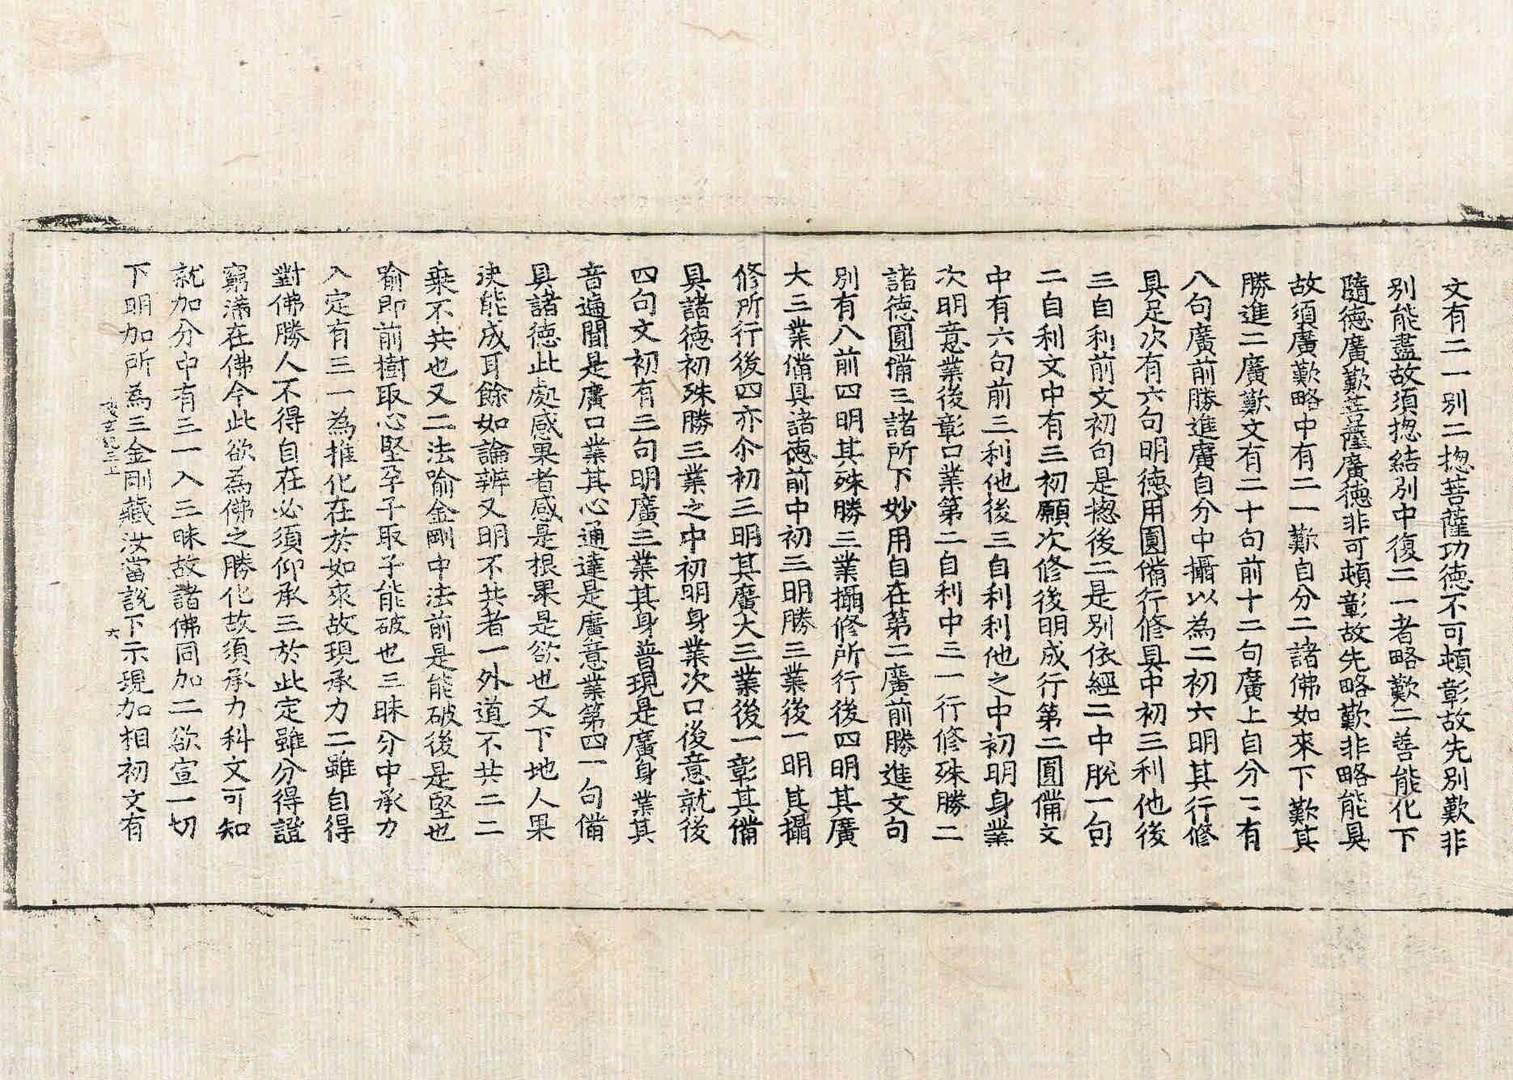 文有二一別二揔菩薩功德不可頓彰故先別歎非
別能盡故須揔結別中復二一者略歎二善能化下
隨德廣歎菩薩廣德非可頓彰故先略歎非略能具
故須廣歎略中有二一歎自分二諸佛如來下歎其
勝進二廣歎文有二十句前十二句廣上自分二有
八句廣前勝進廣自分中攝以為二初六明其行修
具足次有六句明德用圓備行修具中初三利他後
三自利前文初句是揔後二是別依經二中脫一句
二自利文中有三初願次修後明成行第二圓備文
中有六句前三利他後三自利利他之中初明身業
次明意業後彰口業第二自利中三一行修殊勝二
諸德圓備三諸所下妙用自在第二廣前勝進文句
別有八前四明其殊勝三業攝修所行後四明其廣
大三業備具諸德前中初三明勝三業後一明其攝
修所行後四亦尒初三明其廣大三業後一彰其備
具諸德初殊勝三業之中初明身業次口後意就後
四句文初有三句明廣三業其身普現是廣身業其
音遍聞是廣口業其心通達是廣意業第四一句備
具諸德此處感果者感是根果是欲也又下地人果
決能成耳餘如論辨又明不共者一外道不共二二
乘不共也又二法喻金剛中法前是能破後是堅也
喻即前樹取心堅孕子取子能破也三昧分中承力
入定有三一為推化在於如來故現承力二雖自得
對佛勝人不得自在必須仰承三於此定雖分得證
窮滿在佛今此欲為佛之勝化故須承力科文可知
就加分中有三一入三昧故諸佛同加二欲宣一切
下明加所為三金剛藏汝當說下示現加相初文有